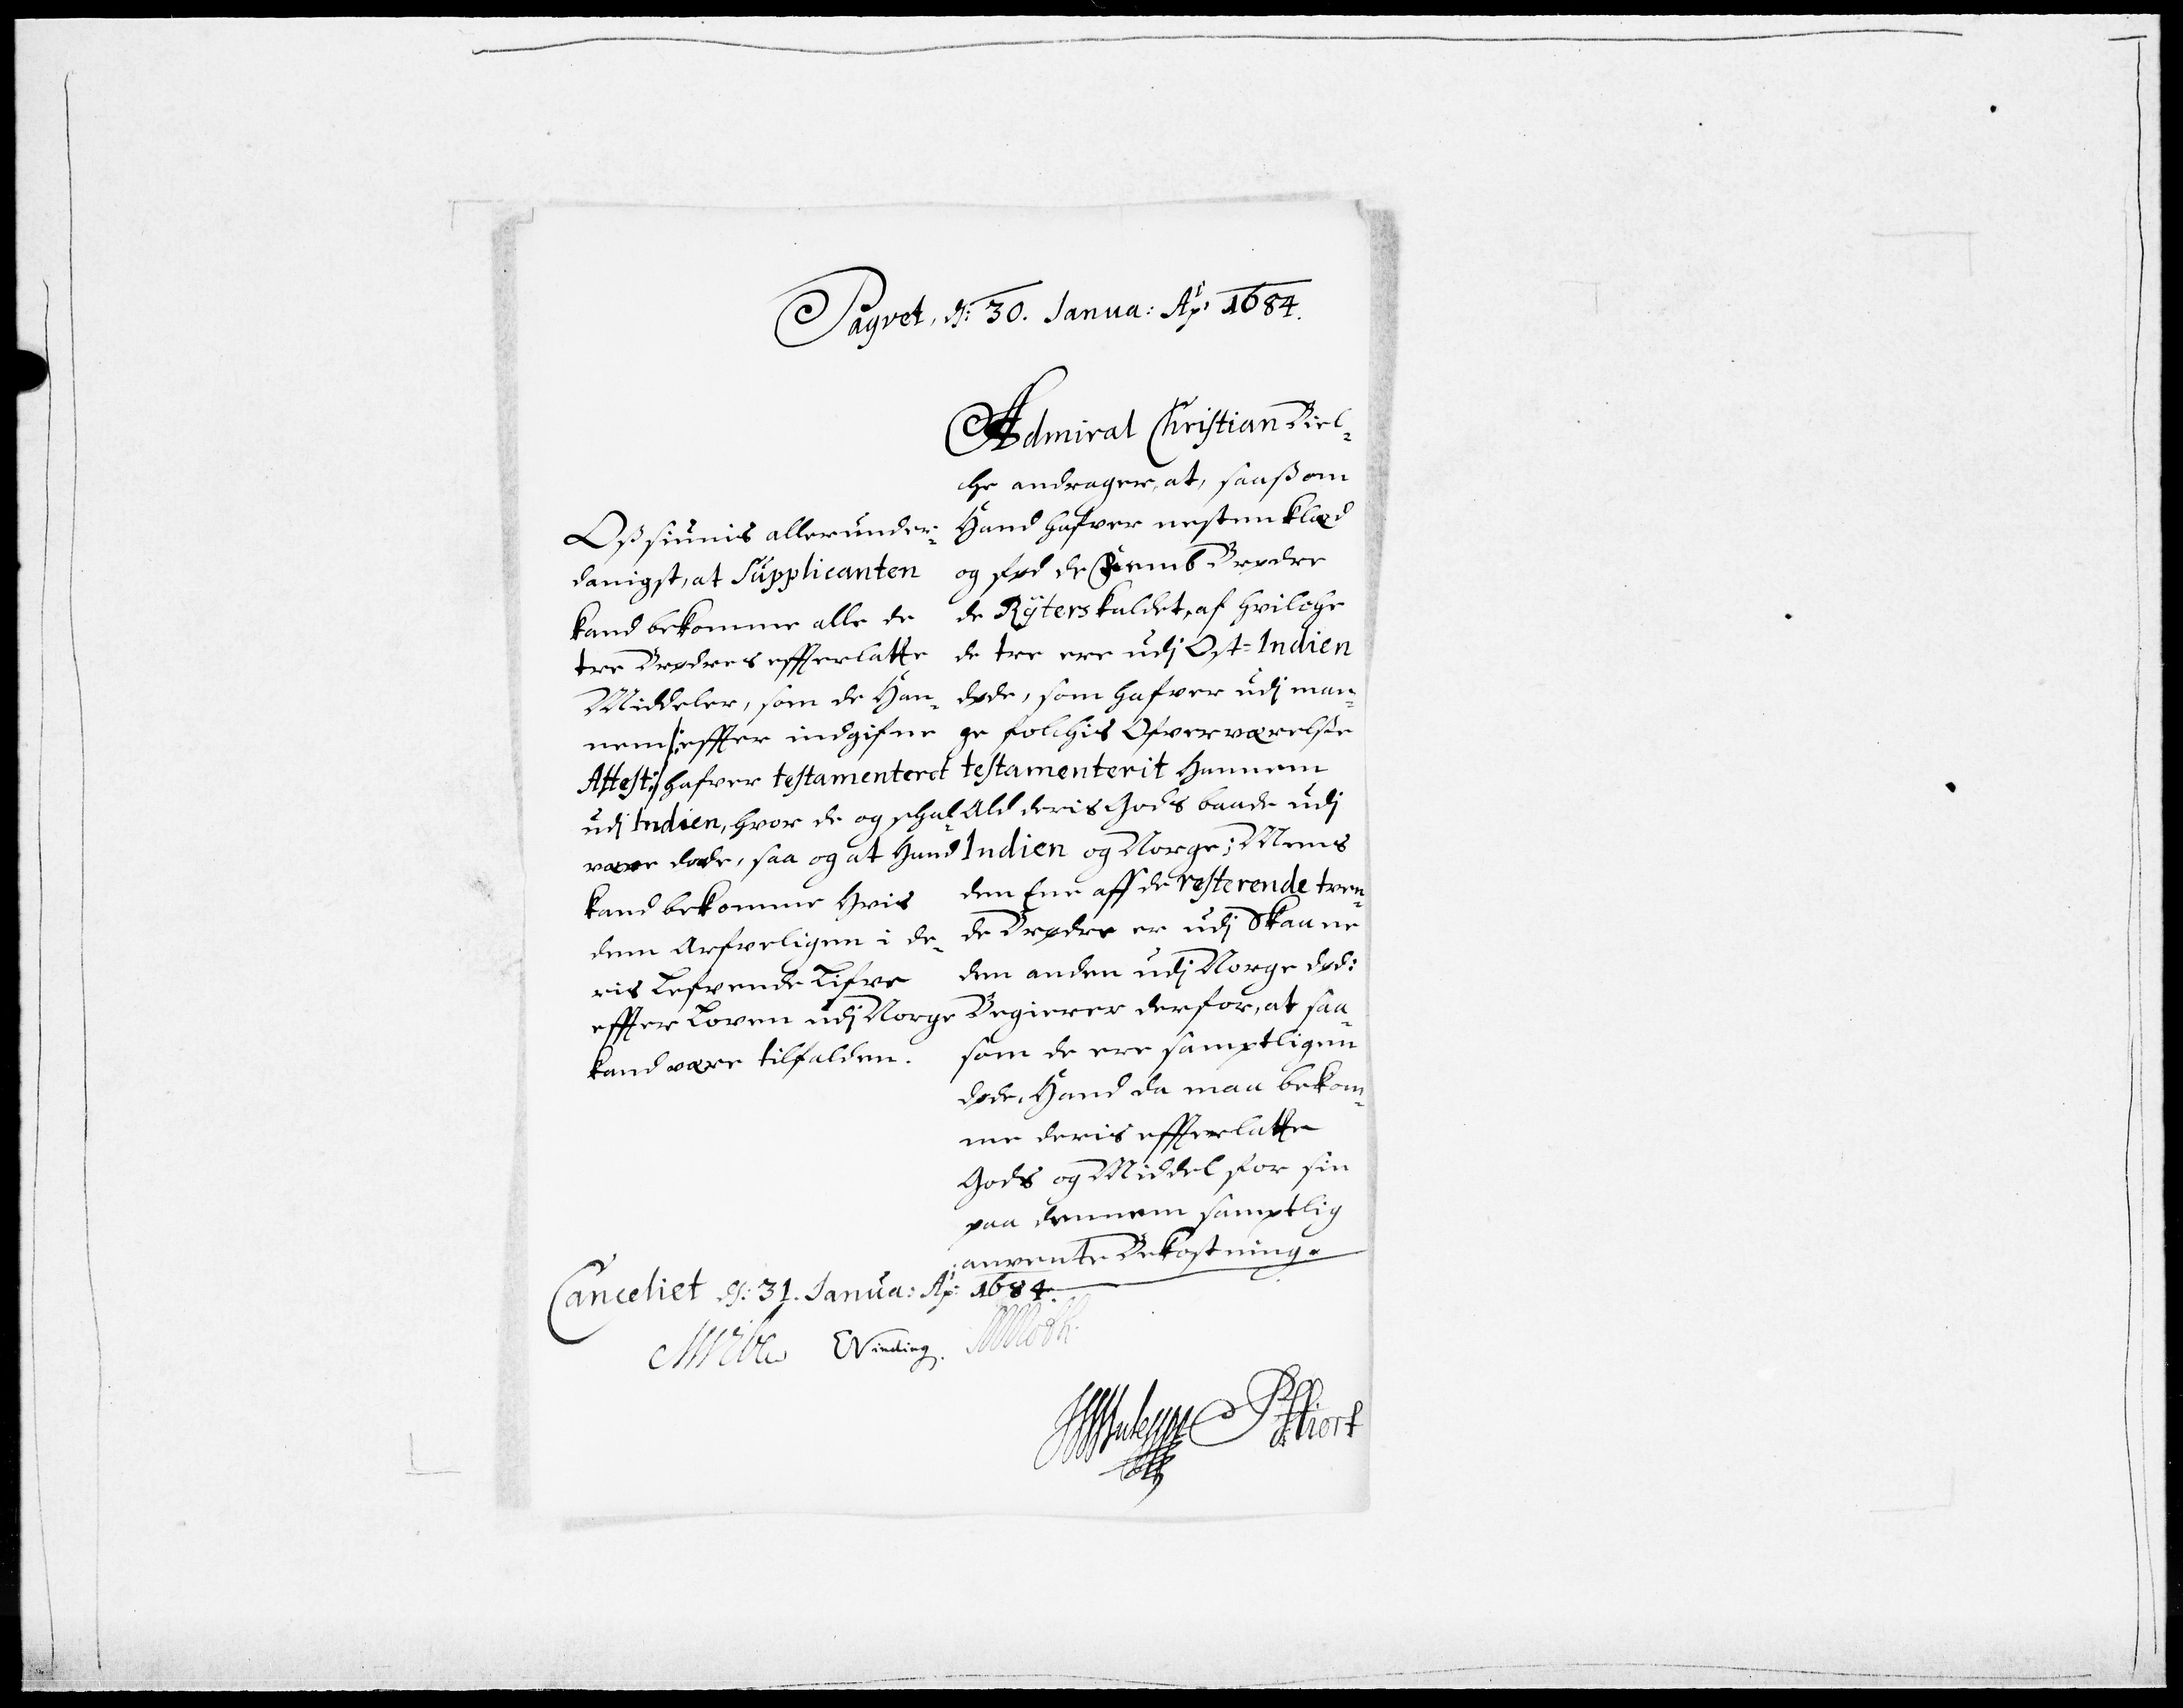 Pagvet, d: 30. Janua: Ao: 1684.
Admiral Christian Biel-
che andrager, at, saasom
Hand hafver nesten klæd
og fød de Femb Brødre
de Ryters kaldet, af hvilche
de tre ere udj Ost-Indien
døde, som hafver udj man-
ge folchis Ofverværelse
testamenterit hannem
Ald deris Gods baade udj
Indien og Norge; Mens
den Ene aff de resterende tven-
de Brødre er udj Skaane
den anden udj Norge død:
Begierer derfor, at saa-
som de ere samptligen
døde, Hand da maa bekom-
me deris effterlatte
Gods og Middel for sin
paa dennem samptlig
anvente Bekostning.
Oß siunis allerunder-
danigst, at Supplicanten
kand bekomme alle de
tre Brødres effterlatte
Middeler, som de Han-
nem /: effter indgifne
Attest:/ hafver testamenteret
udj Indien, hvor de og schal
være døde, saa og at Hand
kand bekomme hvis
dem Arfveligen i de-
ris Lefvende Lifve
effter Loven udj Norge
kand være tilfalden.
Canceliet d: 31. Janua: Ao: 1684.
MVibe Winding. MMoth
PHiort